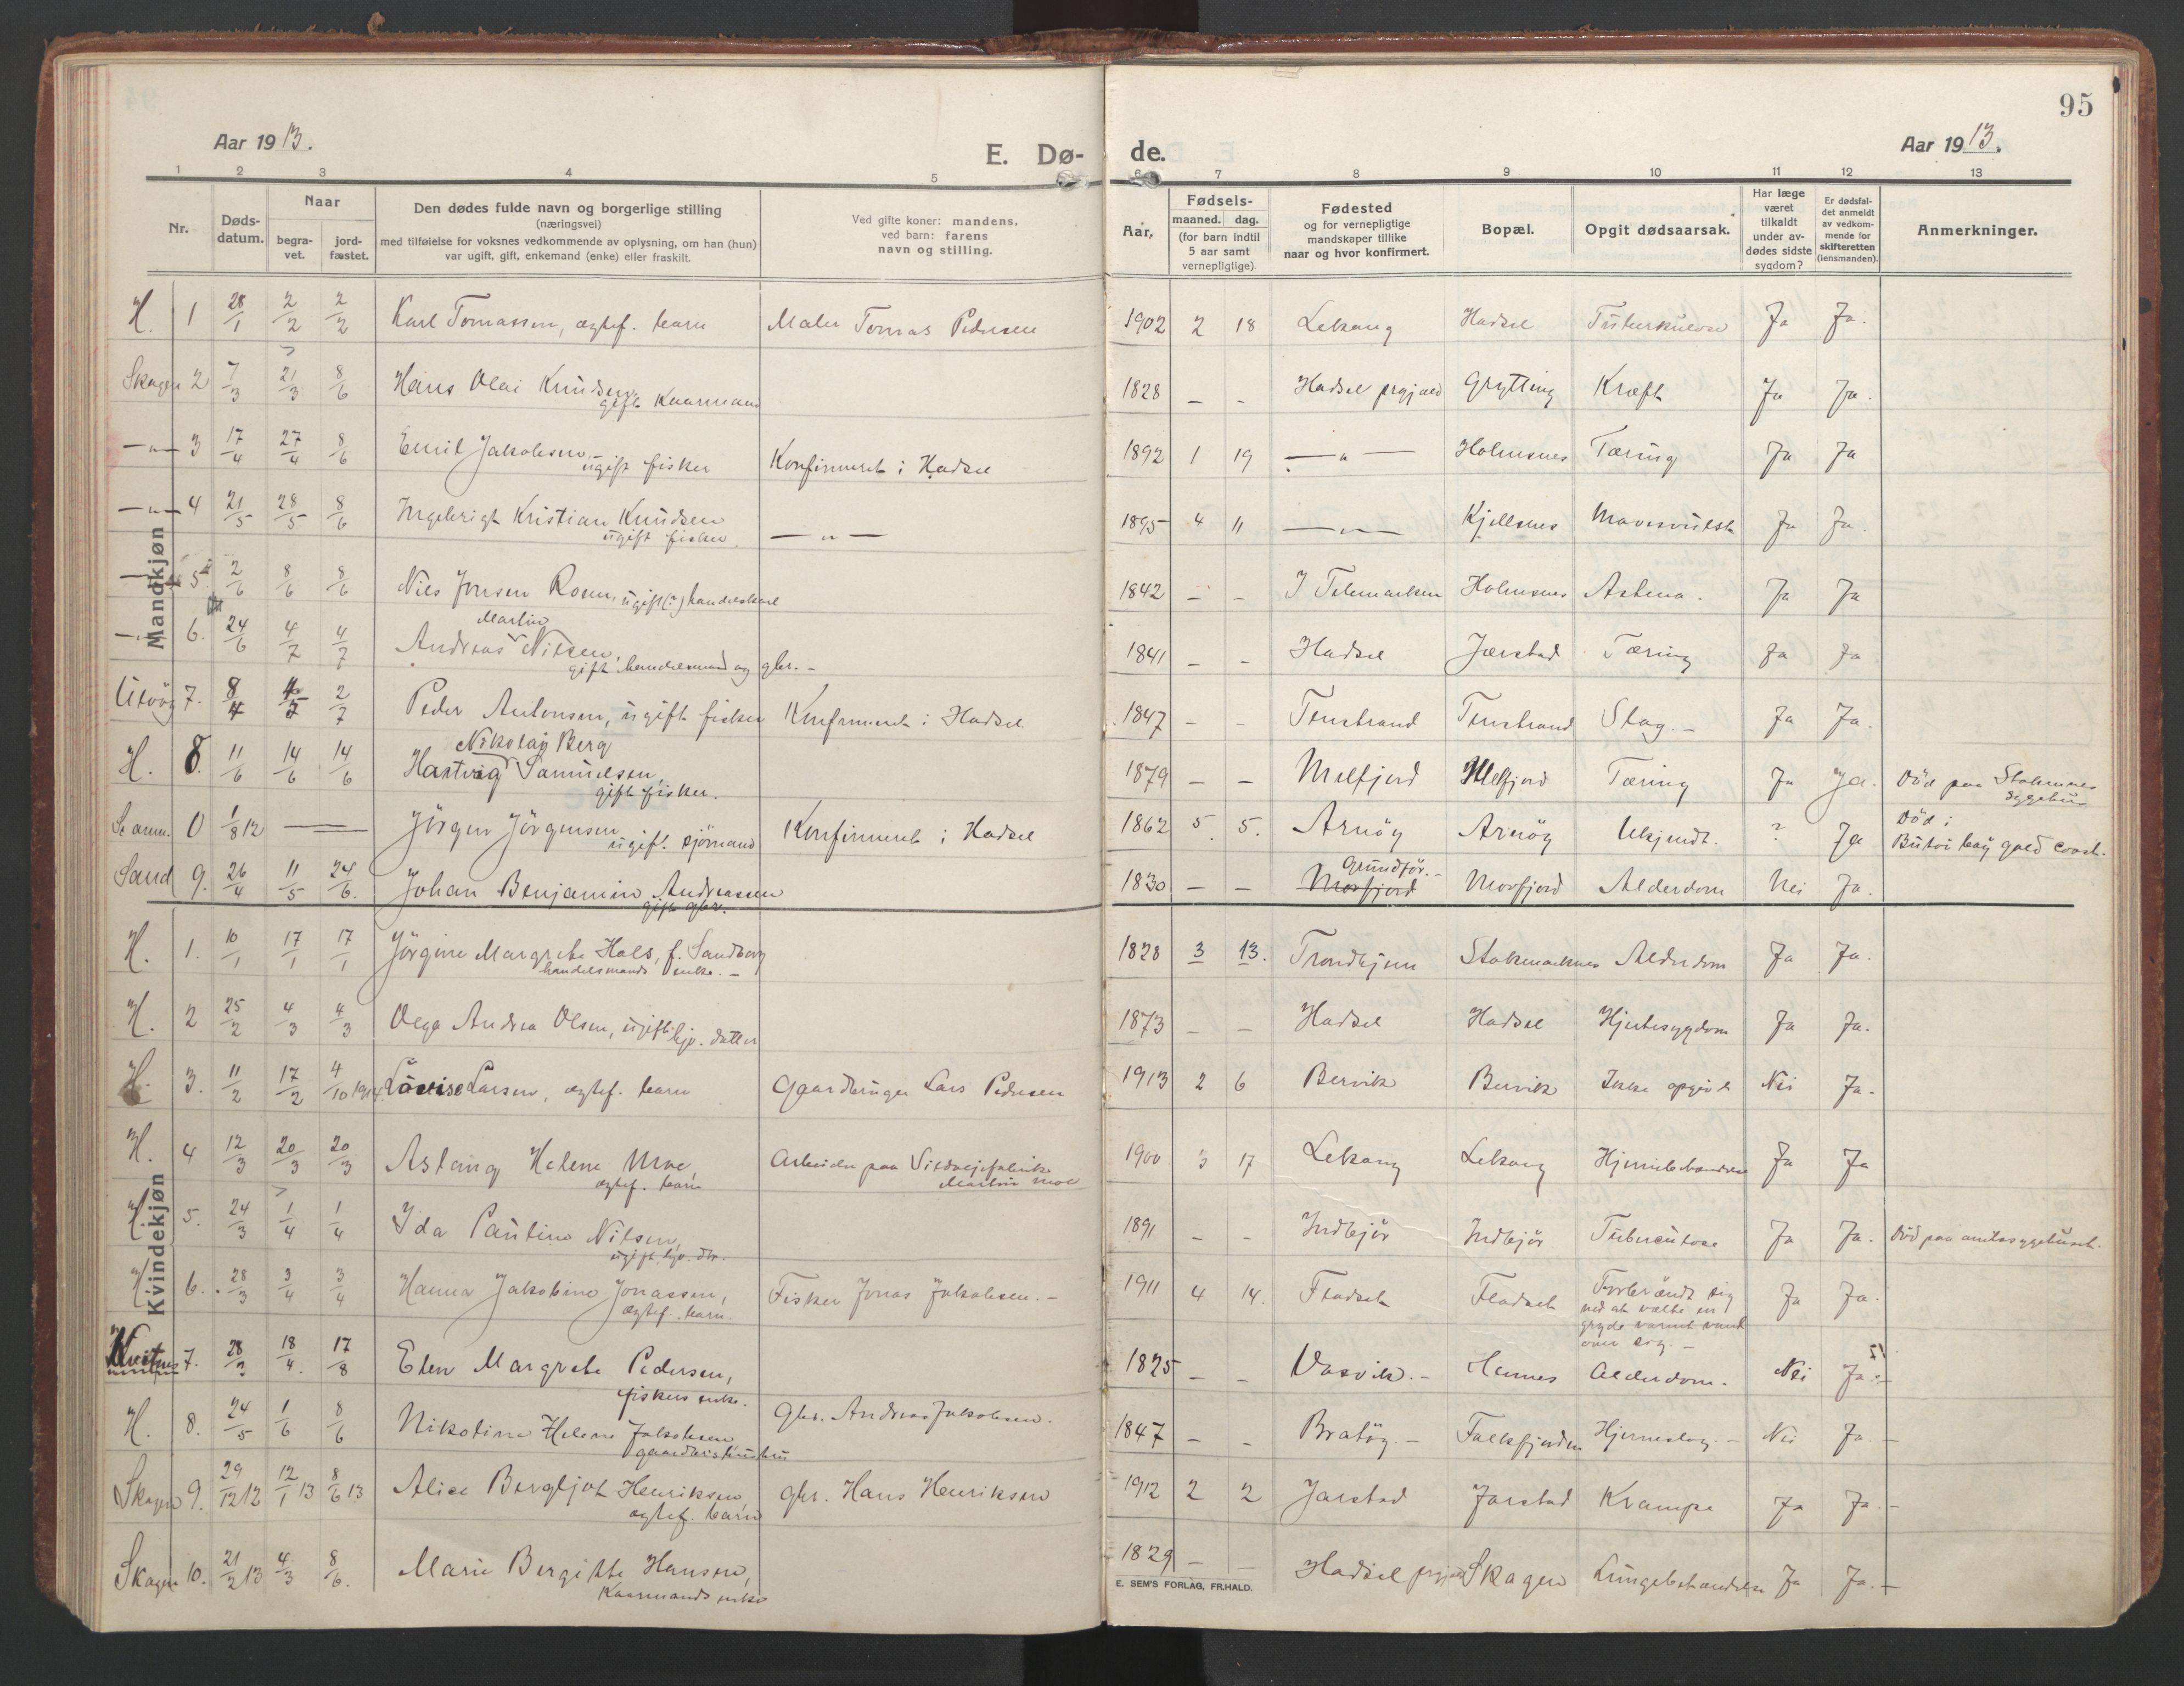 95
Aar 1913.
E. Dø-
de.
Aar 1913.
1 2 3 4 5 6 7 8 9 10 11 12 13
Nr.
Døds-
datum.
Naar
begra-
vet.
jord-
fæstet.
Den dødes fulde navn og borgerlige stilling
(næringsvei)
med tilføielse for voksnes vedkommende av oplysning, om han (hun)
var ugift, gift, enkemand (enke) eller fraskilt.
Ved gifte koner: mandens,
ved barn: farens
navn og stilling.
Aar,
Fødsels-
maaned. dag.
(for barn indtil
5 aar samt
vernepligtige)
Fødested
og for vernepligtige
mandskaper tillike
naar og hvor konfirmert.
Bopæl.
Opgit dødsaarsak.
Har læge
været
tilkaldt
under av-
dødes sidste
sygdom?
Er dødsfal-
det anmeldt
av vedkom-
mende for
skifteretten
(lensmanden).
Anmerkninger.
Mandkjøn
H. 1 28/1 2/2 2/2 Karl Tomassen, ægtef. barn Maler Tomas Pedersen 1902 2 18 Lekang Hadsel Tuberkulose Ja Ja.
Skagen 2 7/3 21/3 8/6 Hans Olai Knudsen, 1828 – – Hadsel prgjæld Grytting Kræft Ja Ja.
gift Kaarmand
–"– 3 17/4 27/4 8/6 Emil Jakobsen, 1892 1 19 –"– Holmsnes Tæring Ja Ja
ugift fisker Konfirmeret i Hadsel
–"– 4 21/5 28/5 8/6 Ingebrigt Kristian Knudsen 1895 4 11 –"– Kjellsnes Mavesvulst Ja Ja.
ugift fisker. –"–
–"– 5 2/6 8/6 8/6 Nils Jonsen Roen, ugift(?) handelskarl 1842 – – I Telemarken Holmsnes Astma. Ja Ja
Martin
–"– 6. 24/6 4/7 4/7 Andreas Nilsen, 1841 – – Hadsel Jærstad Tæring Ja Ja
gift handelsmand og gbr. –
7. 8/4 2/7 Peder Antonsen, ugift fisker Konfirmeret i Hadsel 1847 – – Tenstrand Tenstrand Slag. – Ja Ja.
Nikolay Berg
H. 8. 11/6 14/6 14/6 Hartvig Samuelsen, 1879 – – Melfjord Melfjord Tæring Ja Ja. Död paa Stokmarknes
gift fisker. sygehus
0 1/8 12 — Jörgen Jörgensen 1862 5 5. Arnöy Arnöy Ukjendt. ? Ja Död i
ugift. sjömand Konfirmeret i Hadsel gold coast.
Grundför. –
Sand 9. 26/4 11/5 24/6. Johan Benjamin Andreassen 1830 – – Morfjord Morfjord Alderdom Nei Ja.
gift gbr.
Kvindekjøn
H. 1. 10/1 17/1 17/1 Jörgine Margrete Hals, f. Sandberg 1828 3 13. Trondhjem Stokmarknes Alderdom Ja Ja.
handelsmands enke. –
H. 2 25/2 4/3 4/3 Olga Andrea Olsen, ugift hjv. datter 1873 – – Hadsel Hadsel Hjertesygdom Ja Ja.
H. 3. 11/2 17/2 4/10 1914. Lovise Larsen, ægtef. barn Gaardbruger Lars Pedersen 1913 2 6 Bervik Bervik Ikke opgivet Nei Ja.
H. 4 12/3 20/3 20/3 Aslaug Helene Moe, Arbeider paa Sildoljefabrik 1900 3 17 Lekang Lekang Hjernebetændelse Ja Ja
ægtef. barn Martin Moe
H. 5. 24/3 1/4 1/4 Ida Pauline Nilsen, 1891 – – Indbjör Indbjör Tuberculose Ja Ja. Död paa amtssygehuset.
ugift hjv. dtr.
H 6. 28/3 3/4 3/4 Hanna Jakobine Jonassen, Fisker Jonas Jakobsen. – 1911 4 14. Fladset Fladset Forbrændt sig Ja Ja.
ægtef. barn. ved at velte en
gryde varmt vand
over sig. –
7. 28/3 18/4. 17/8 Elen Margrete Pedersen, 1825 – – Vasvik. – Hennes Alderdom. Nei Ja. –
fiskers enke.
H. 8. 24/5 1/6 8/6 Nikoline Helene Jakobsen, Gbr. Andreas Jakobsen. 1847 – – Bratöy. – Falkfjorden Hjerneslag. – Nei Ja. –
gaardbrukerhustru
Skagen 9. 29/12 12 12/1 13 8/6 13 Alice Bergljot Henriksen, gbr. Hans Henriksen 1912 2 2 Jarstad Jarstad Krampe Ja Ja. –
ægtef. barn
Skagen 10. 21/2 13 4/3 8/6. Marie Bergitte Hansen, 1829 – – Hadsel prgjæld Skagen Lungebetændelse Ja Ja. –
Kaarmands enke
E. SEM'S FORLAG, FR.HALD.